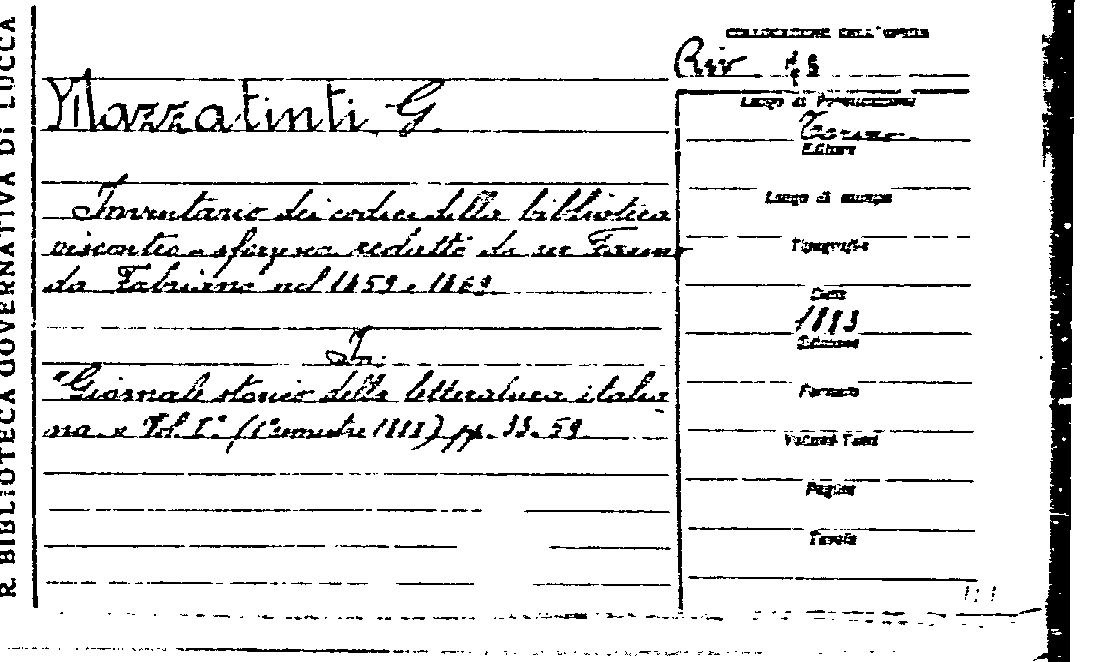 R. BIBLIOTECA GOVERNATIVA DI LUCCA
COLLOCAZIONE DELL'OPERA
Riv
Mazzatinti G.
Inventario dei codici della biblioteca
visconteo-sforzesca redatto da ser
da Fabriano nel 1459 e 1469
In:
"Giornale storico della letteratura italia
na" Vol. I° (1° semestre 1883) pp. 33-59
Luogo di Pubblicazione
Torino
Editore
Luogo di stampa
Tipografia
Data
1883
Edizione
Formato
Volumi Tomi
Pagine
Tavole